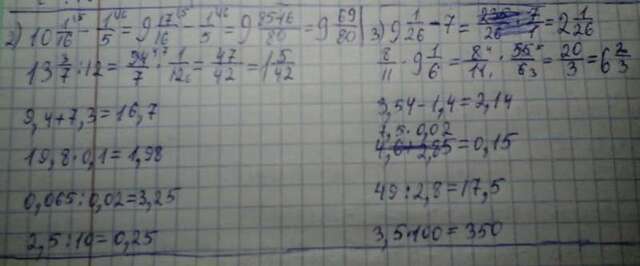 2) 10 1/16 - 1/5 = 9 17/16 - 1/5 = 9 85-16/80 = 9 69/80
13 3/7 : 12 = 94/7 · 1/12 = 47/42 = 1 5/42
9,4+7,3=16,7
19,8·0,1=1,98
0,065:0,02=3,25
2,5:10=0,25
3) 9 1/26 - 7 = 2 1/26
8/11 · 9 1/6 = 8/11 · 55/6 = 20/3 = 6 2/3
3,54-1,4=2,14
7,5·0,02 =0,15
49:2,8=17,5
3,5·100=350